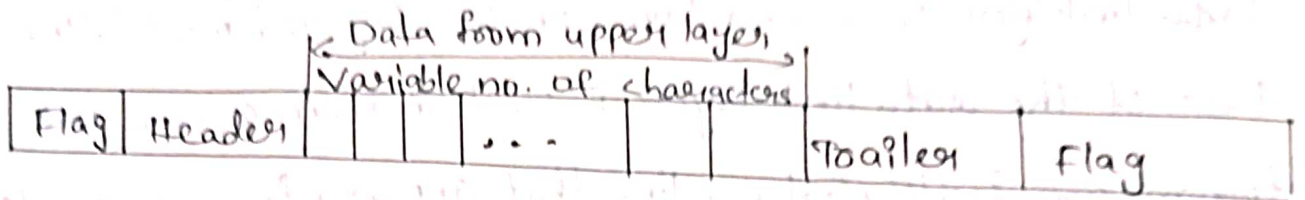 Data from upper layer
Variable no. of characters
Flag Header ... Trailer Flag